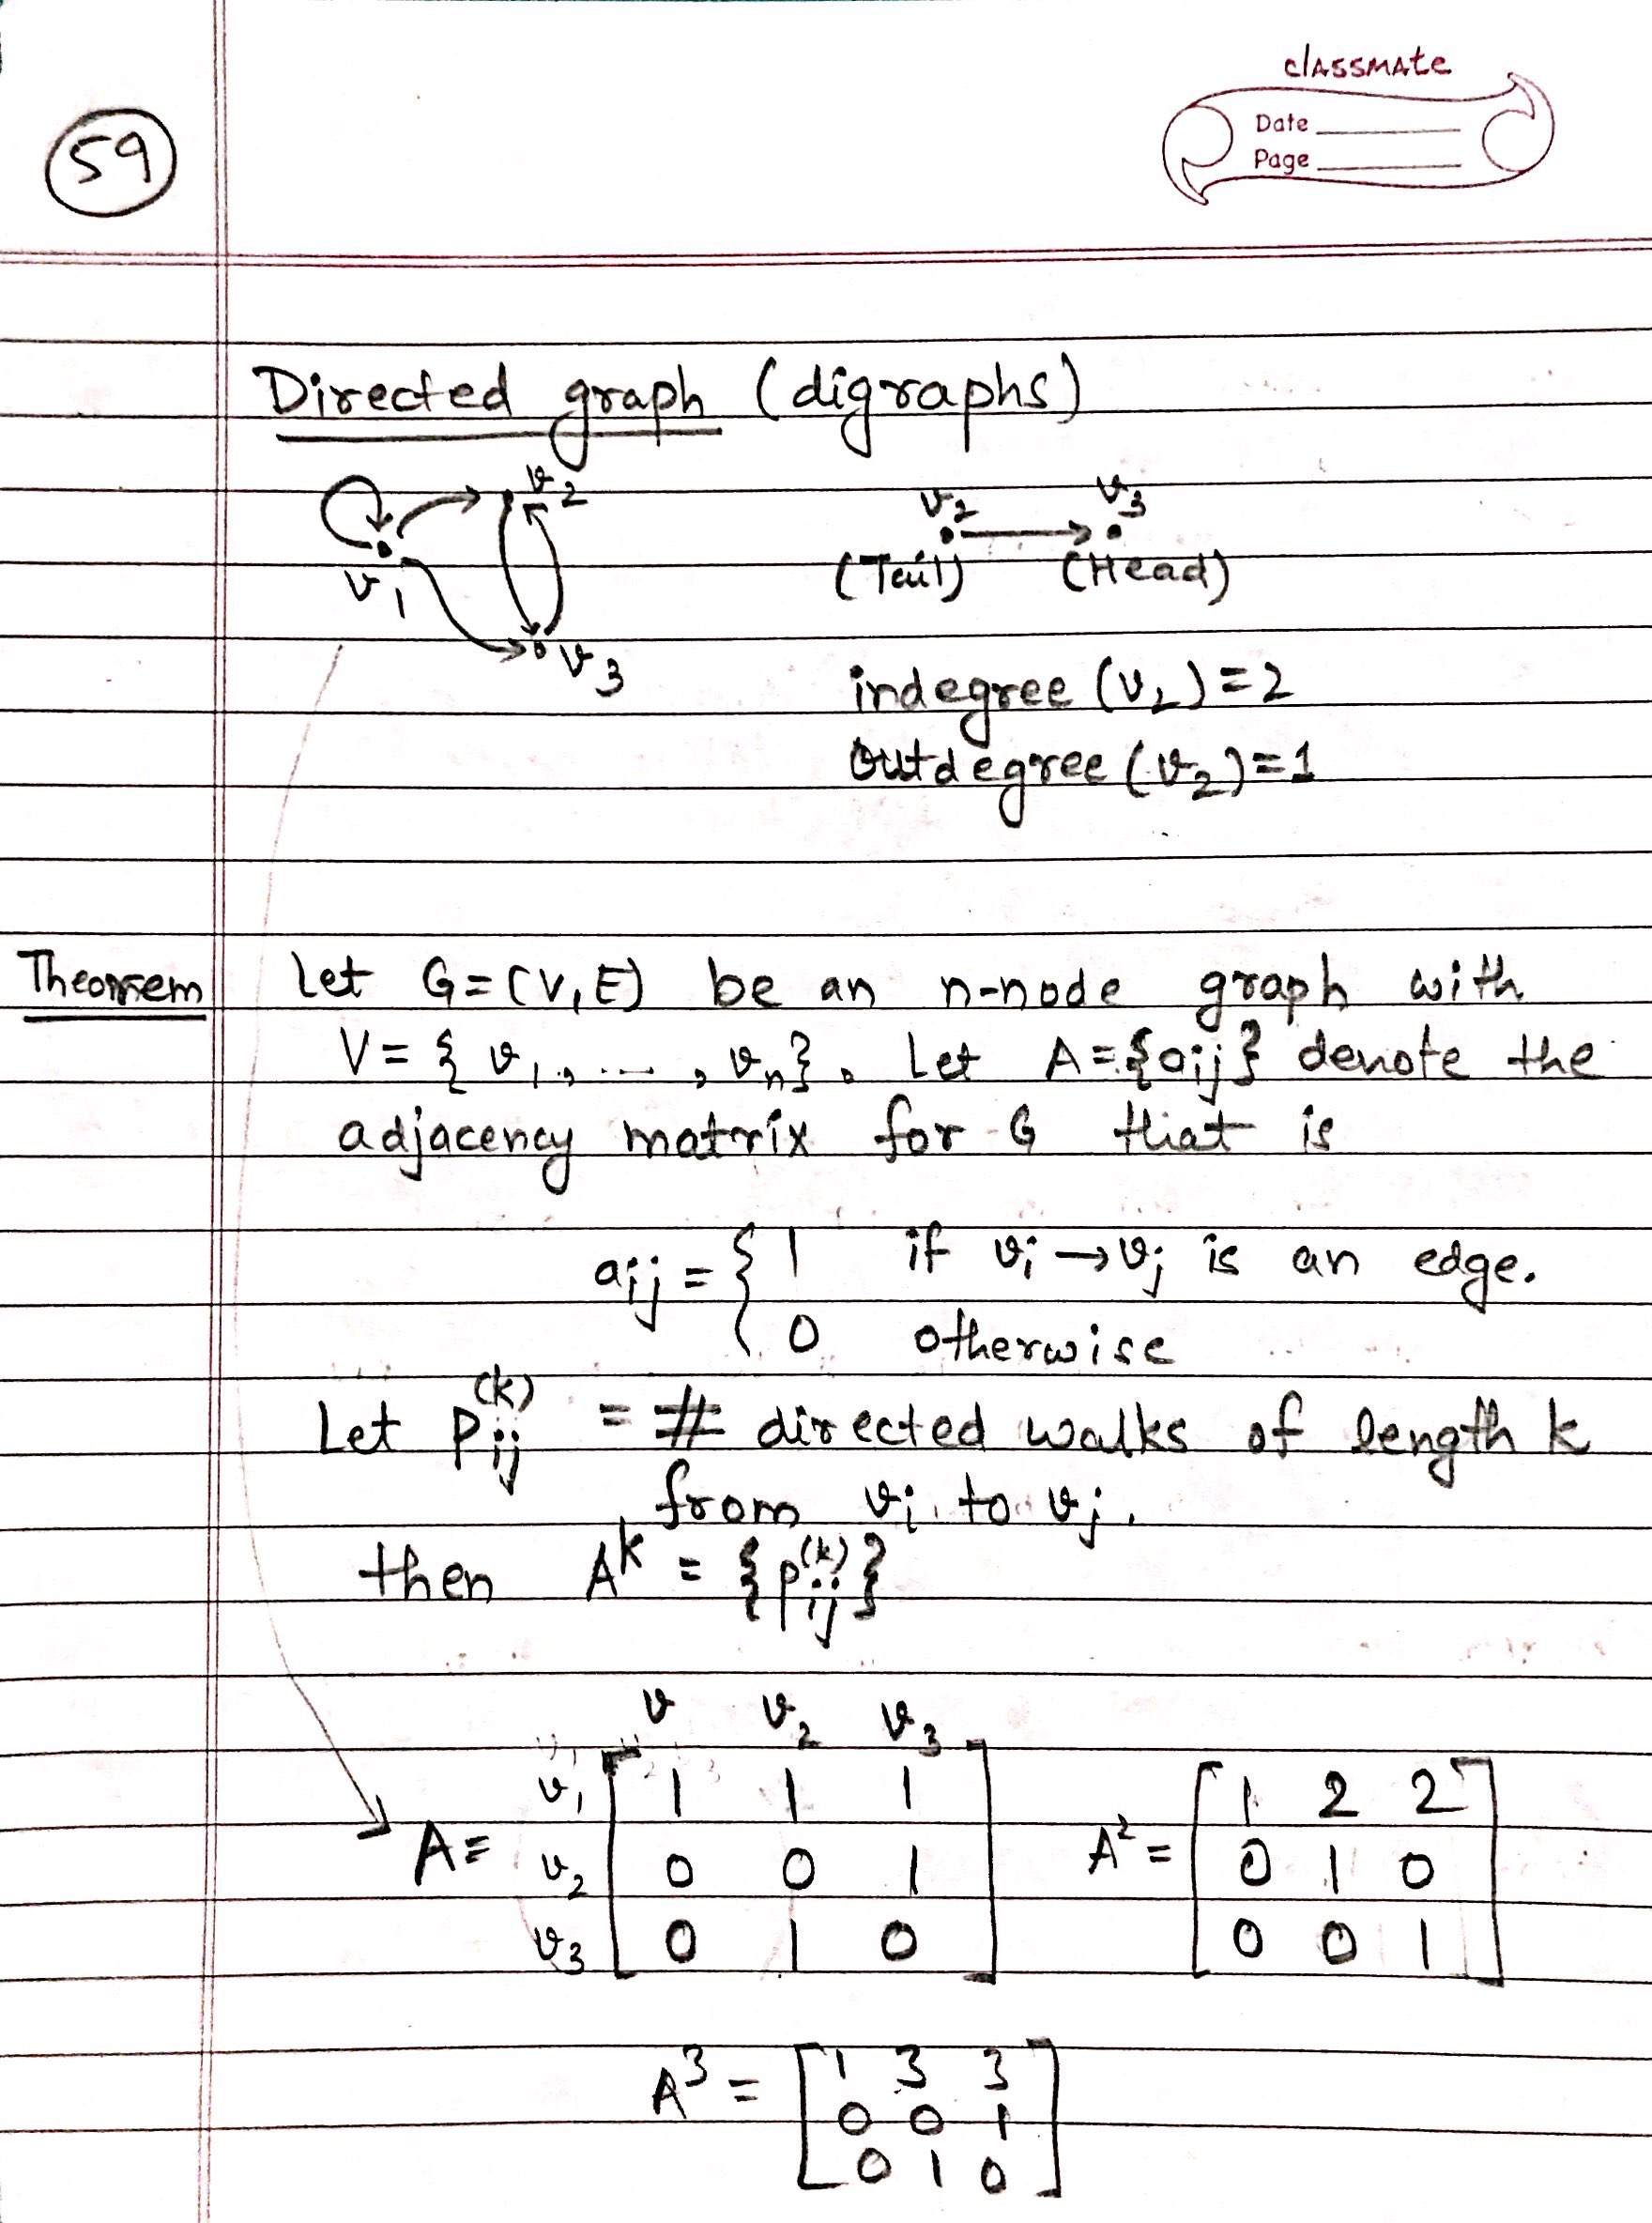 classmate
Date
Page
59
Directed graph (digraphs)
v2
v1
v3
v2 v3
(Tail) (Head)
indegree (v2) = 2
Outdegree (v2) = 1
Theorem Let G = (V, E) be an n-node graph with
V = { v1, ..., vn}. Let A = {aij} denote the
adjacency matrix for G that is
aij = { 1 if vi → vj is an edge.
0 otherwise
Let Pij(k) = # directed walks of length k
from vi to vj.
then A^k = {Pij(k)}
v v2 v3
v1 1 1 1
A = v2 0 0 1
v3 0 1 0
A² = [ 1 2 2
0 1 0
0 0 1 ]
A³ = [ 1 3 3
0 0 1
0 1 0 ]